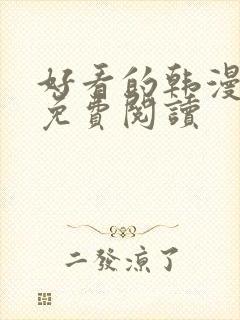 好看的韩漫
免費閱讀
二發凉了